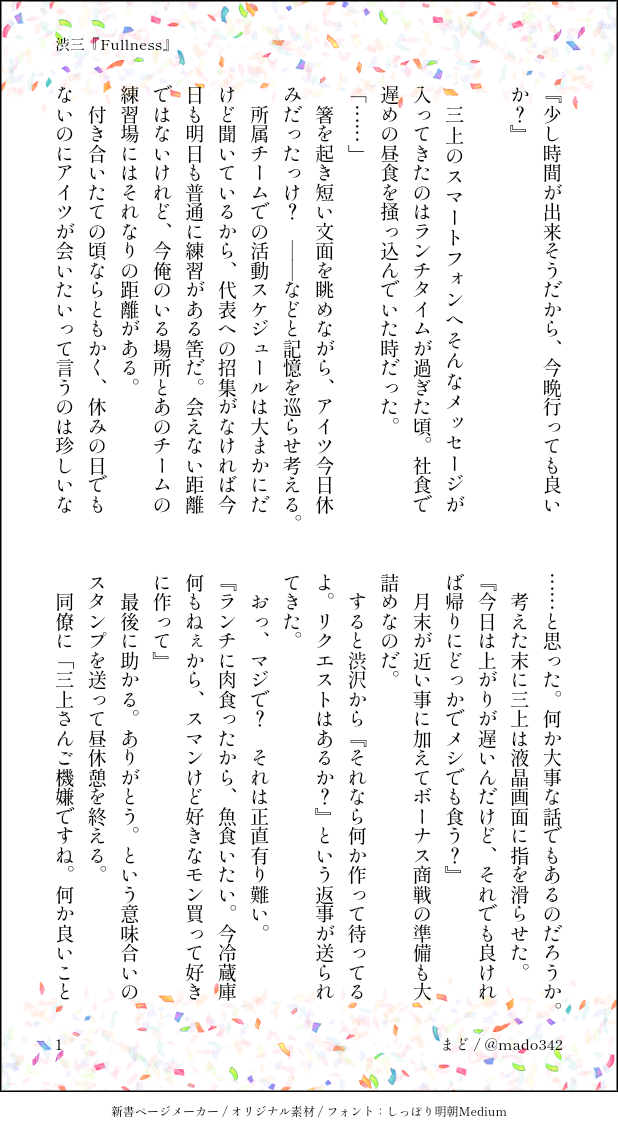 渋三『Fullness』
『少し時間が出来そうだから、今晩行っても良い
か？』
三上のスマートフォンへそんなメッセージが
入ってきたのはランチタイムが過ぎた頃。社食で
遅めの昼食を掻っ込んでいた時だった。
「……」
箸を起き短い文面を眺めながら、アイツ今日休
みだったっけ？　――などと記憶を巡らせ考える。
所属チームでの活動スケジュールは大まかにだ
けど聞いているから、代表への招集がなければ今
日も明日も普通に練習がある筈だ。会えない距離
ではないけれど、今俺のいる場所とあのチームの
練習場にはそれなりの距離がある。
付き合いたての頃ならともかく、休みの日でも
ないのにアイツが会いたいって言うのは珍しいな
……と思った。何か大事な話でもあるのだろうか。
考えた末に三上は液晶画面に指を滑らせた。
『今日は上がりが遅いんだけど、それでも良けれ
ば帰りにどっかでメシでも食う？』
月末が近い事に加えてボーナス商戦の準備も大
詰めなのだ。
すると渋沢から『それなら何か作って待ってる
よ。リクエストはあるか？』という返事が送られ
てきた。
おっ、マジで？　それは正直有り難い。
『ランチに肉食ったから、魚食いたい。今冷蔵庫
何もねぇから、スマンけど好きなモン買って好き
に作って』
最後に助かる。ありがとう。という意味合いの
スタンプを送って昼休憩を終える。
同僚に「三上さんご機嫌ですね。何か良いこと
1
まど / @mado342
新書ページメーカー / オリジナル素材 / フォント：しっぽり明朝Medium